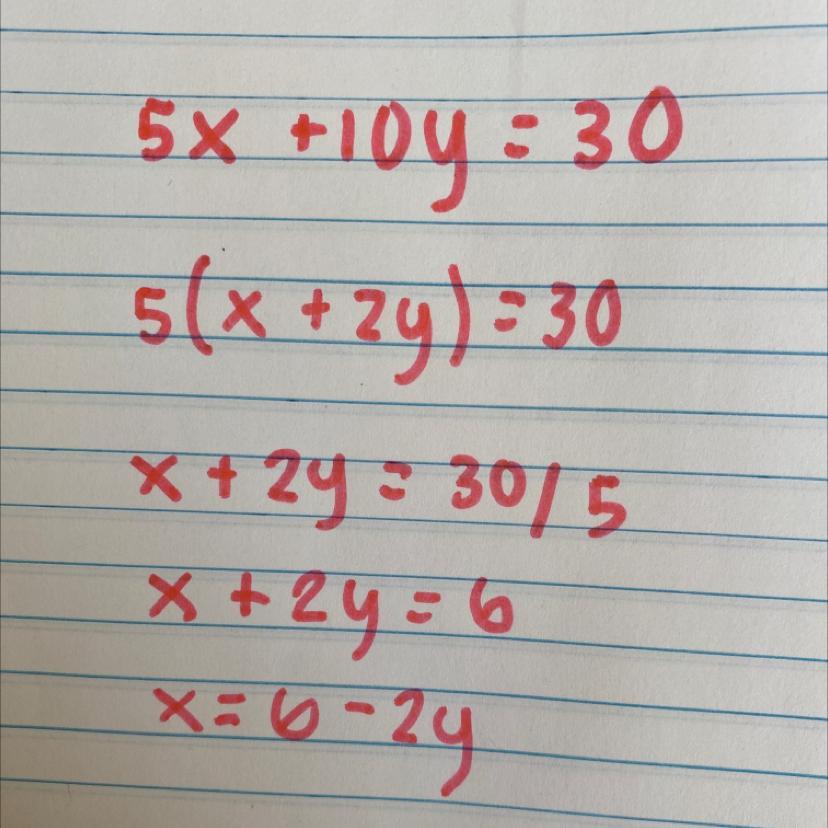 5x + 10y = 30
5(x + 2y) = 30
x + 2y = 30/5
x + 2y = 6
x = 6 - 2y